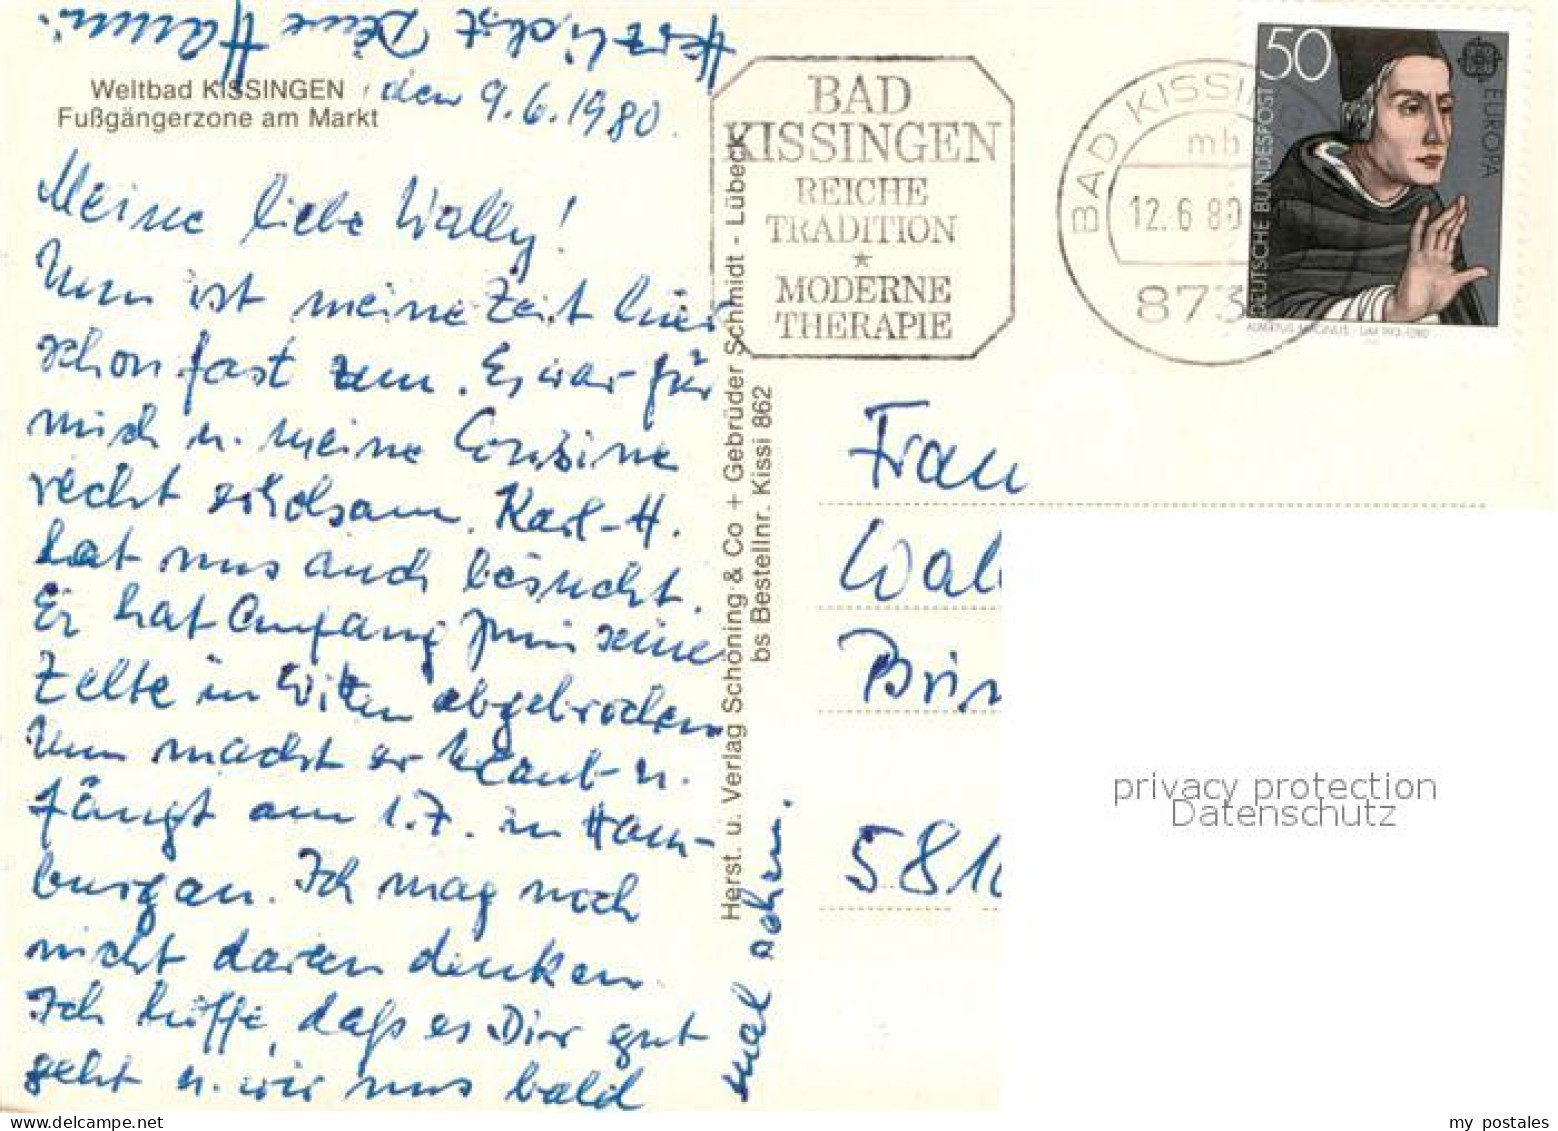 Weltbad KISSINGEN, den 9.6.1980.
Fußgängerzone am Markt
Meine liebe Wally!
Nun ist meine Zeit hier
schon fast um. Es war für
mich u. meine Cousine
recht erholsam. Karl-H.
hat uns auch besucht.
Er hat Anfang Juni seine
Zelte in Witten abgebrochen
Nun macht er Urlaub u.
fängt am 1.7. in Ham-
burg an. Ich mag noch
nicht daran denken.
Ich hoffe, daß es Dir gut
geht u. wir uns bald
mal sehen.
Herzlichst Deine Hanni.
Herst. u. Verlag Schöning & Co + Gebrüder Schmidt - Lübeck
bs Bestellnr. Kissi 862
BAD
KISSINGEN
REICHE
TRADITION
*
MODERNE
THERAPIE
BAD KISSING
mb
12.6.80
873
50
EUROPA
DEUTSCHE BUNDESPOST
ALBERTUS MAGNUS · UM 1193-1280
Frau
Wal
Brin
581
privacy protection
Datenschutz
my postales